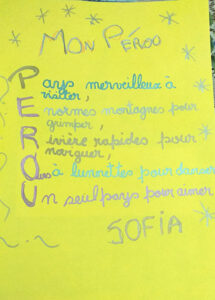 MON PÉROU
Pays merveilleux à
visiter,
Enormes montagnes pour
grimper,
Rivière rapides pour
narguer,
Ours à lunnettes pour danser
Un seul pays pour aimer
SOFIA